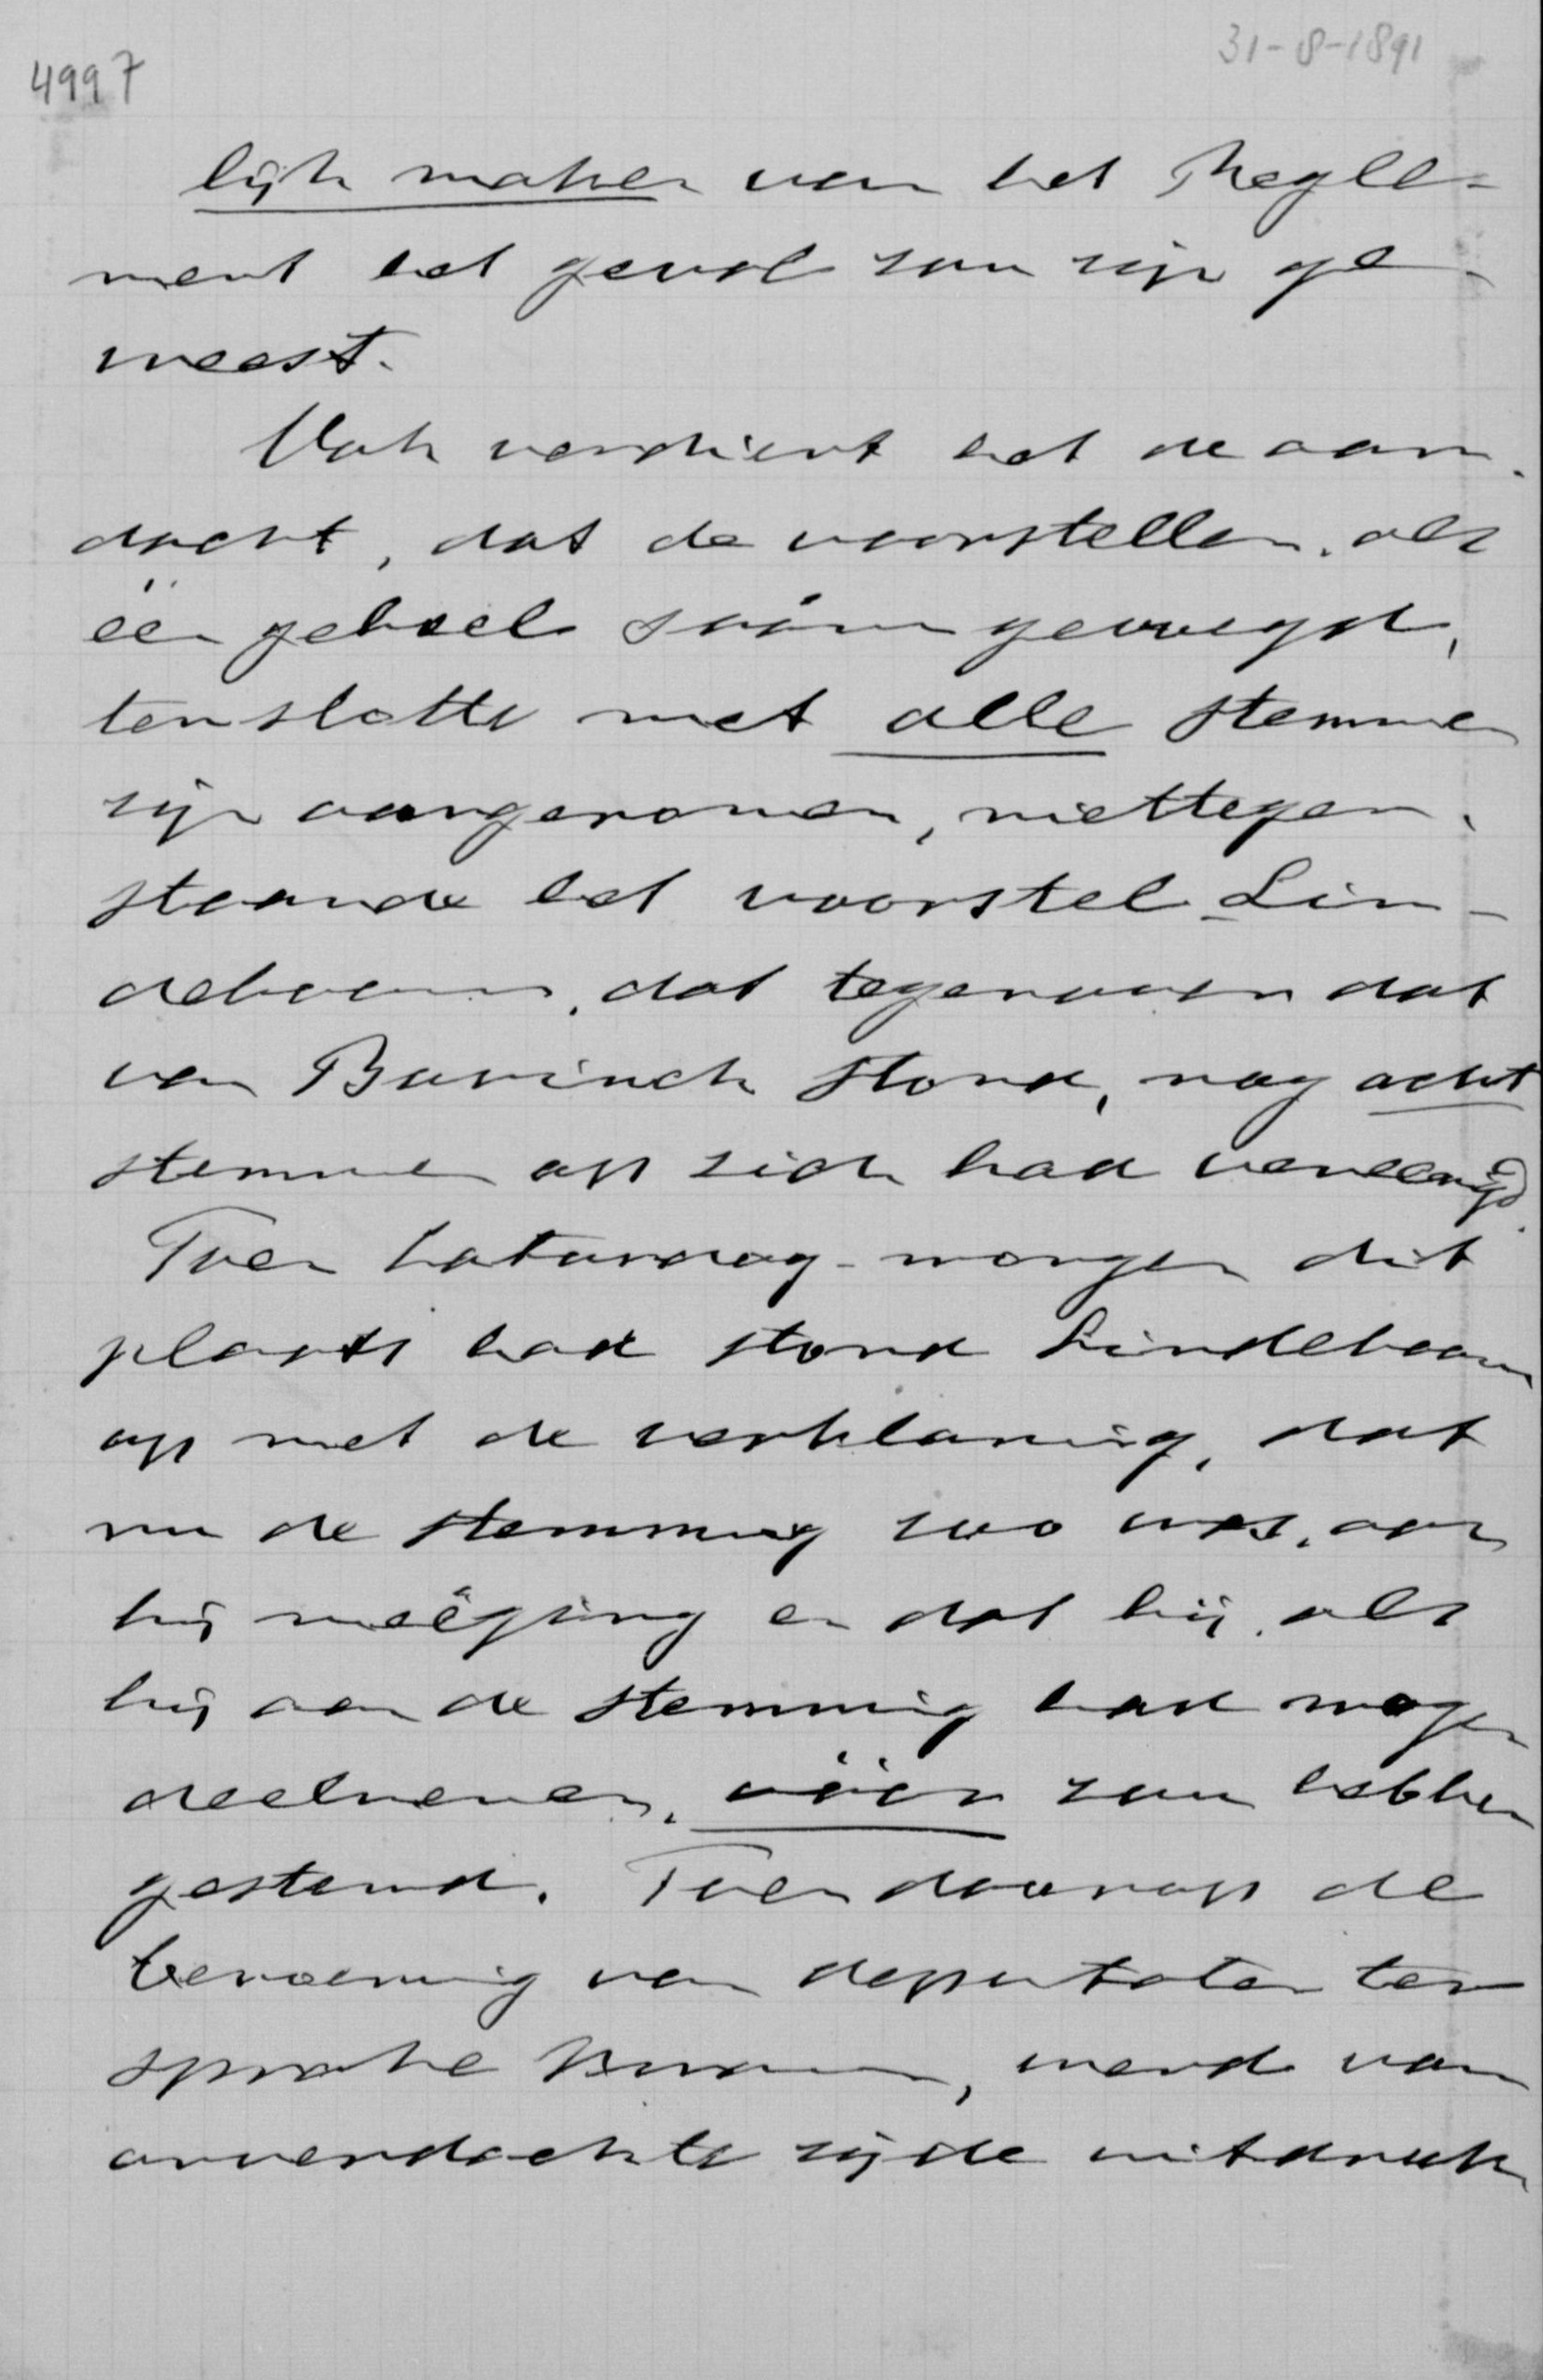 31-8-1891
4997
lijk maken van het Regle-
ment het geval zou zijn ge-
weest.
Ook verdient het de aan-
dacht, dat de voorstellen, als
één geheel saâmgevoegd,
ten slotte met alle stemmen
zijn aangenomen, niettegen-
staande het voorstel Lin-
deboom, dat tegenover dat
van Bavinck stond, nog acht
stemmen op zich had vereenigd.
Toen Saturdag-morgen dit
plaats had stond Lindeboom
op met de verklaring, dat
nu de stemming zoo was, ook
hij meêging en dat hij, als
hij aan de stemming had mogen
deelnemen, vóór zou hebben
gestemd. Toen daarop de
benoeming van deputaten ter
sprake kwam, werd van
onverdachte zijde uitdruk